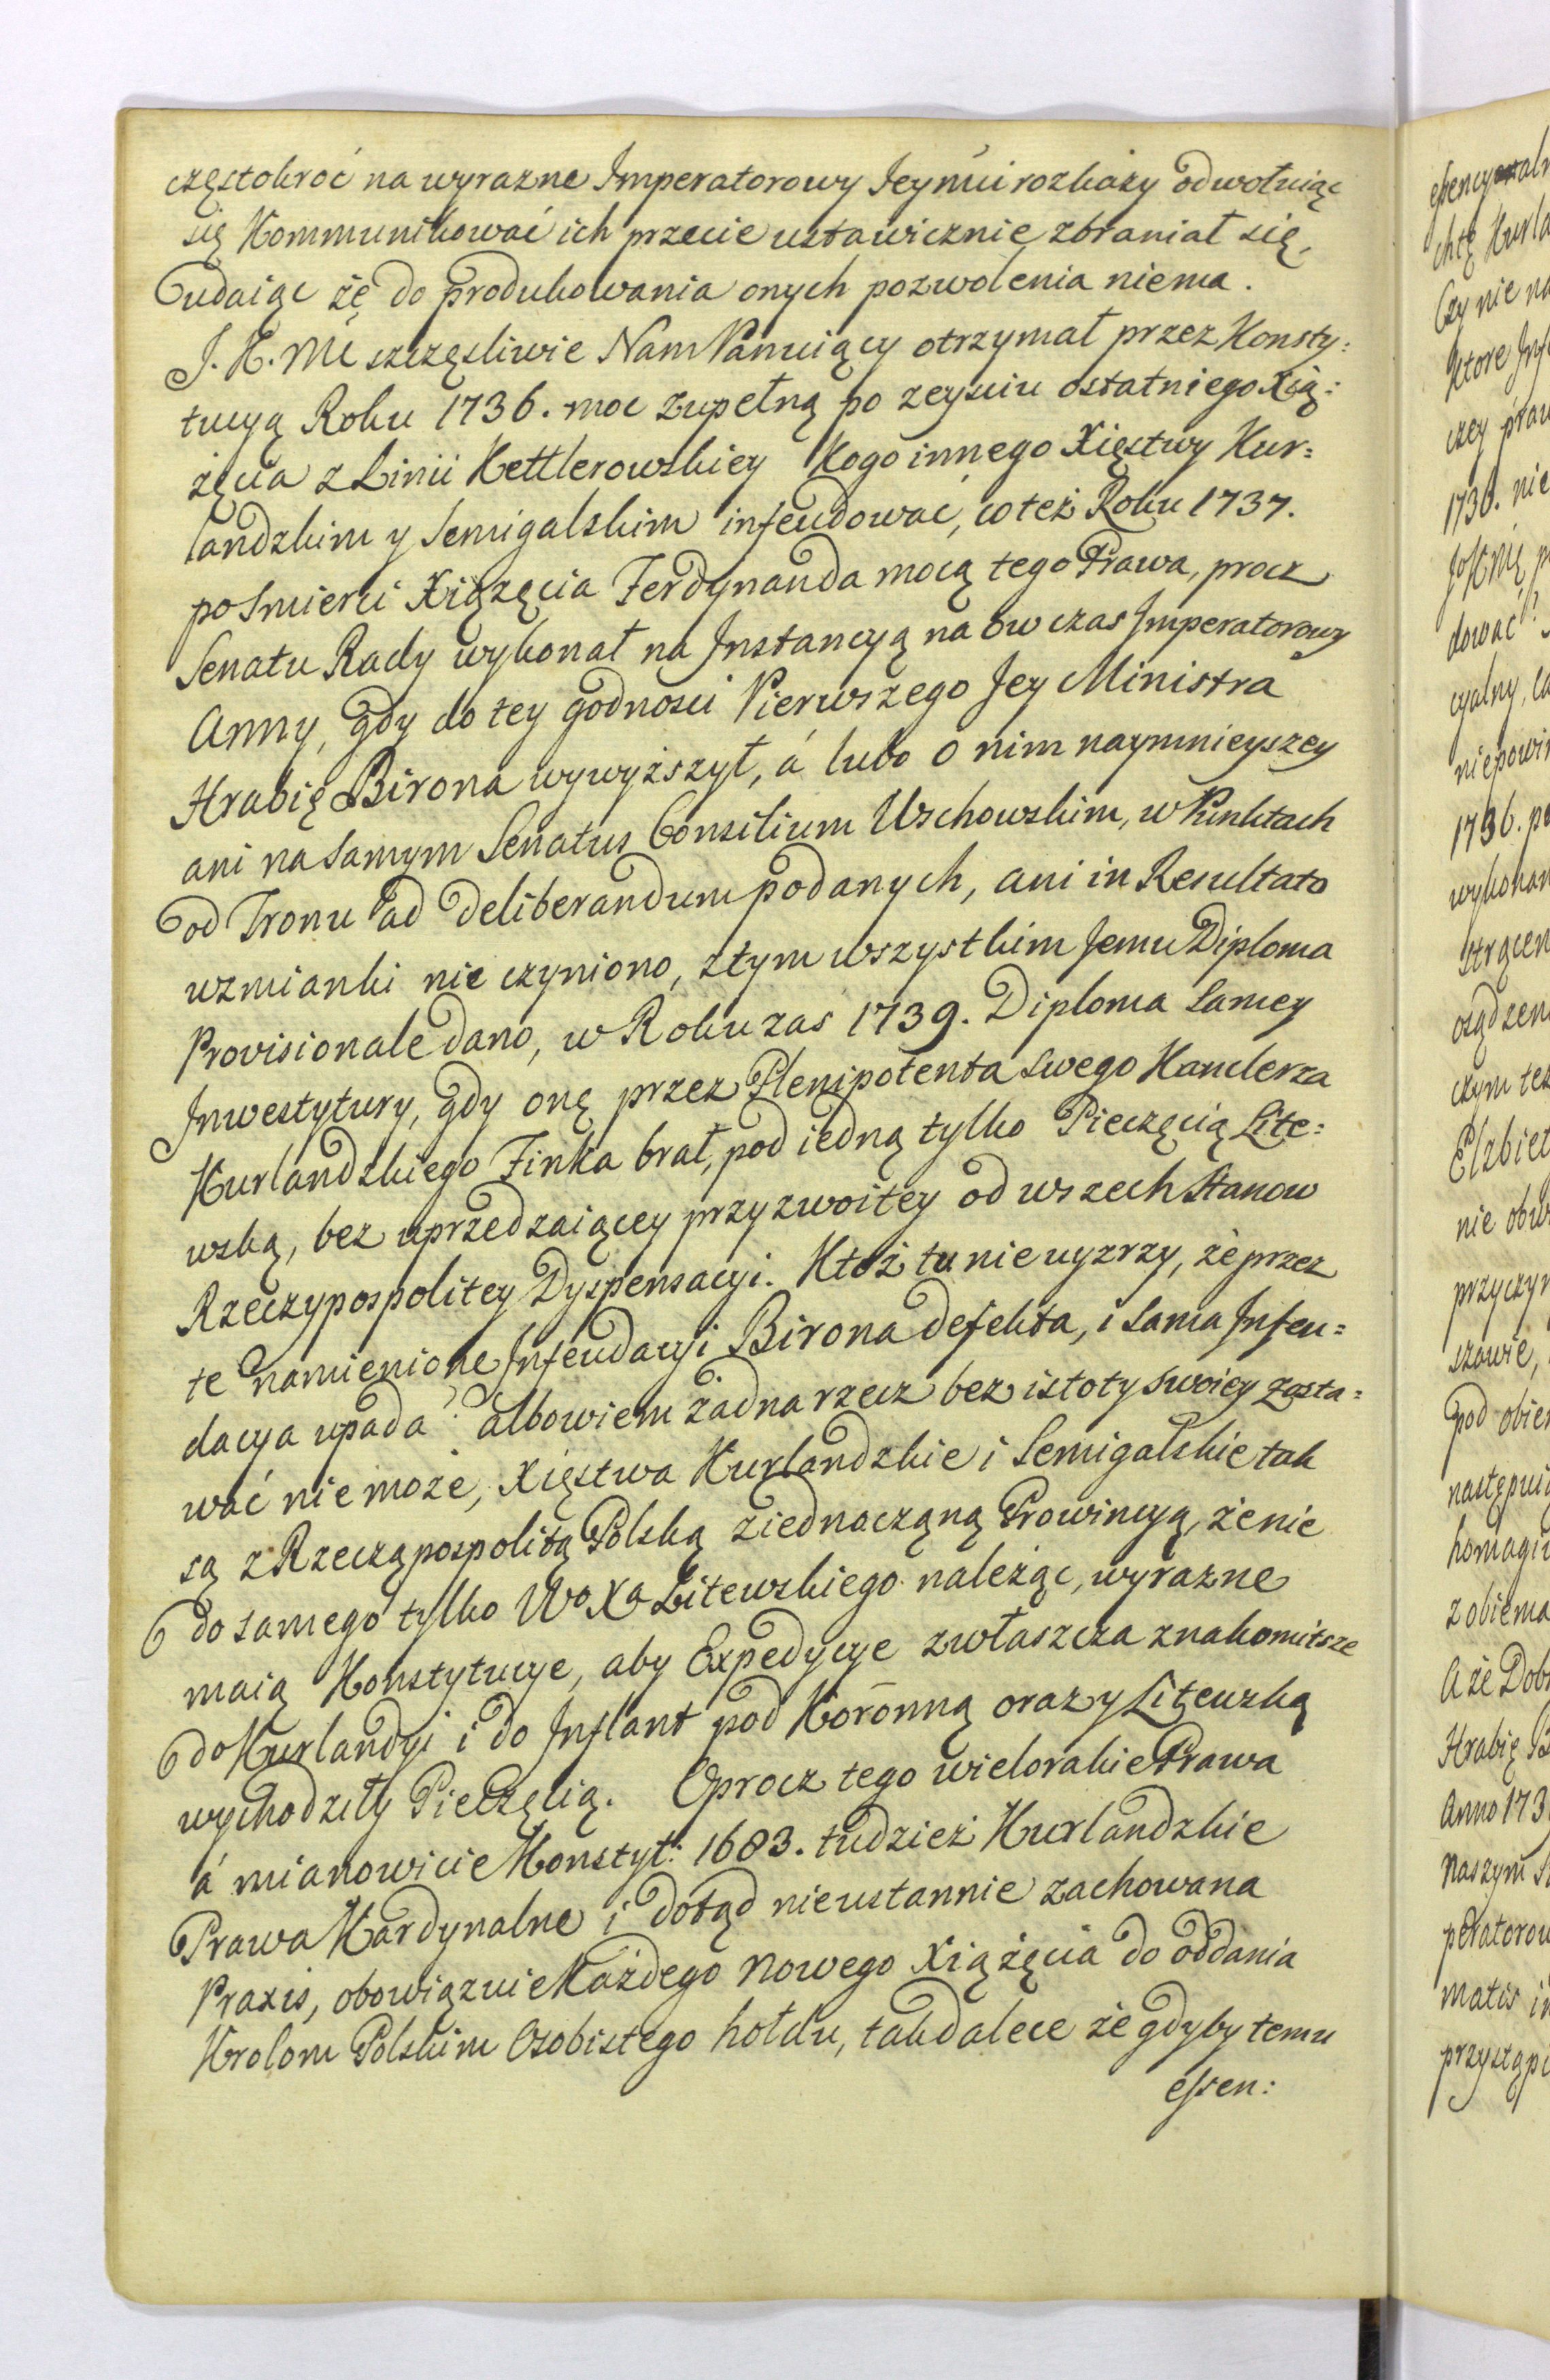 częstokroć na wyrazne Imperatorowy Jeymći rozkazy odwołuiąc
się Kommunikować ich przecie ustawicznie zbraniał się,
udaiąc żę do produkowania onych pozwolenia niema.
J. K. Mć szczęsliwie Nam Panuiący otrzymał przez Konsty:
tucyą Roku 1736. moc zupełną po zeysciu ostatniego Xią:
żęcia z Linii Kettlerowskiey Kogo innego Xięstwy Kur:
landzkim y Semigalskim infeudować, co też Roku 1737.
po Smierci Xiążęcia Ferdynanda mocą tego Prawa, procz
Senatu Rady wykonał na Jnstancyą na ow czas Jmperatorowy
Anny, gdy do tey godnosci Pierwszego Jey Ministra
Hrabię Birona wywyższył, á lubo o nim naymnieyszey
ani na Samym Senatus Consilium Wschowskim, w Punktach
od Tronu ad deliberandum podanych, ani in Resultato
wzmianki nie czyniono, z tym wszystkim Jemu Diploma
Provisionale dano, w Roku zas 1739. Diploma Samey
Jnwestytury, gdy onę przez Plenipotenta swego Kanclerza
Kurlandzkiego Finka brał, pod iedną tylko Pieczęcią Lite:
wską, bez uprzedzaiącey przyzwoitey od wszech Stanow
Rzeczypospolitey Dyspensacyi. Ktoż tu nie uyzrzy, że przez
te namienione Jnfeudacyi Birona defekta, i Sama Jnfeu=
dacya upada? albowiem żadna rzecz bez istoty swoiey zosta=
wać nie może, Xięstwa Kurlandzkie i Semigalskie tak
są z Rzecząpospolitą Polską ziednocząną Prowincyą, że nie
do samego tylko Wo Xa Litewskiego należąc, wyrazne
maią Konstytucye, aby Expedycye zwłaszcza znakomitsze
do Kurlandyi i do Jnflant pod Koronną oraz y Litewską
wychodziły Pieczęcią. Oprocz tego wielorakie Prawa
á mianowicie Konstyt: 1683. tudzież Kurlandzkie
Prawa Kardynalne i dotąd nieustannie zachowana
Praxis, obowiązuie Każdego nowego Xiążęcia do oddania
Krolom Polskim Osobistego hołdu, tak dalece że gdyby temu
essen: